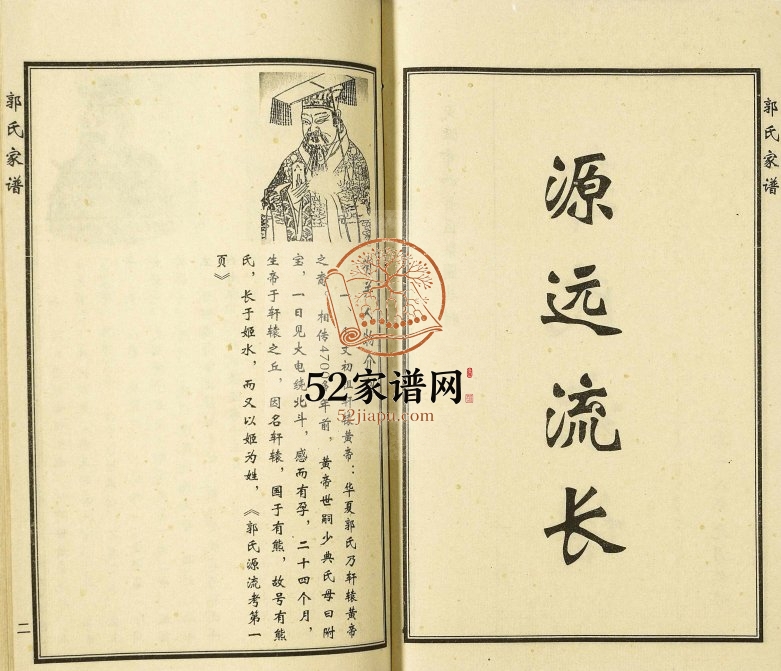 郭氏家谱
源远流长
郭氏家谱
人物介
一、文初祖轩辕黄帝：华夏郭氏乃轩辕黄帝
之裔，相传4700多年前，黄帝世嗣少典氏母曰附
宝，一日见大电绕北斗，感而有孕，二十四个月，
生帝于轩辕之丘，因名轩辕，国于有熊，故号有熊
氏，长于姬水，而又以姬为姓，《郭氏源流考第一
页》
二
52家谱网
52jiapu.com